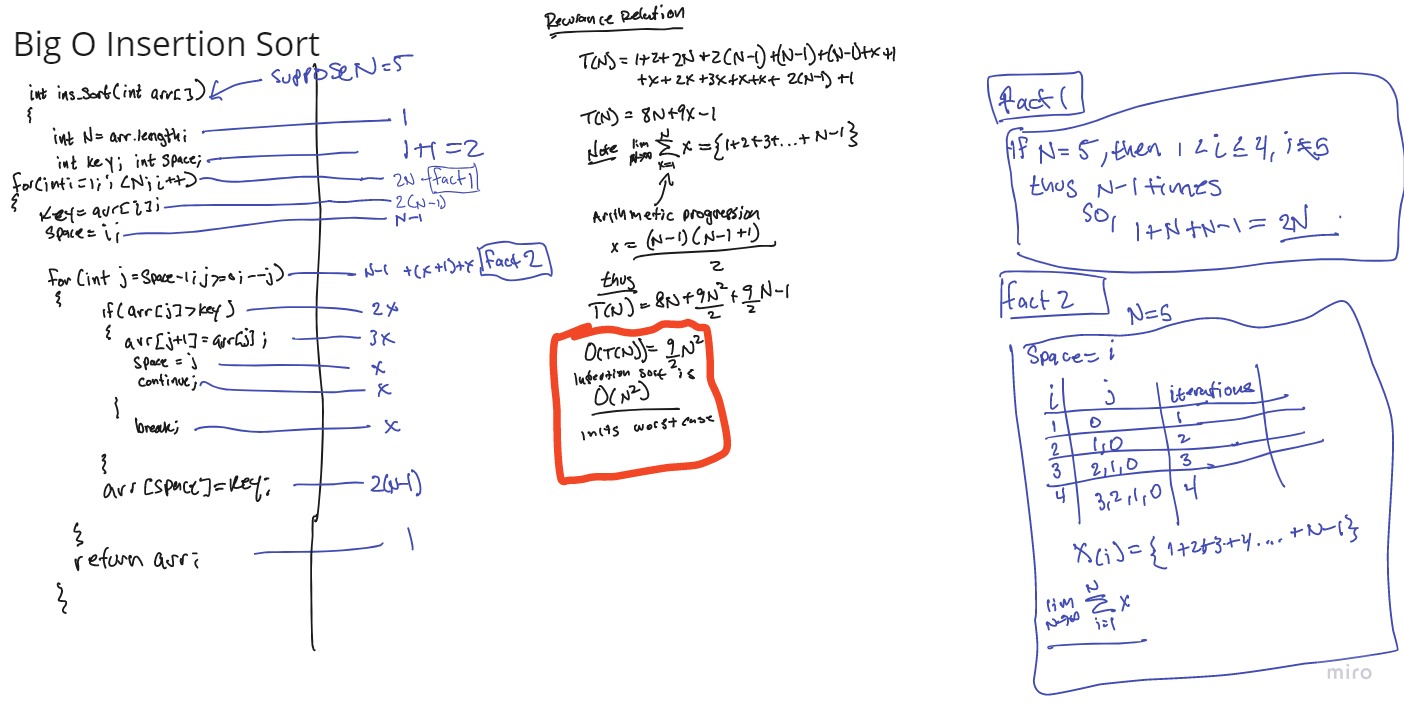 Big O Insertion Sort
suppose N=5
int ins_sort(int arr[])
{
int N= arr.length;
1
int key; int space;
1+1=2
for(int i=1; i<N; i++)
2N - fact 1
{
key= arr[i];
2(N-1)
space= i;
N-1
for(int j=space-1; j>=0; --j)
N-1 +(x+1)+x fact 2
{
if(arr[j]>key)
2x
{ arr[j+1]=arr[j];
3x
space = j
x
continue;
x
}
break;
x
}
arr[space]=key;
2(N-1)
}
return arr;
1
}
Recurance Relation
T(N)= 1+2+2N+2(N-1)+(N-1)+(N-1)+x+1
+x+2x+3x+x+x+ 2(N-1)+1
T(N)= 8N+9x-1
Note lim N→∞ N Σ x=1 x = {1+2+3+...+N-1}
Arithmetic progression
x = (N-1)(N-1+1)
2
thus
T(N)= 8N+9N²/2+9/2N-1
O(T(N))= 9/2N²
Insertion sort is
O(N²)
in its worst case
fact 1
If N=5, then 1<i≤4, i≠5
thus N-1 times
so, 1+N+N-1= 2N
fact 2
N=5
Space= i
i j iterations
1 0 1
2 1,0 2
3 2,1,0 3
4 3,2,1,0 4
x(i)={1+2+3+4....+N-1}
lim N→∞ N Σ i=1 x
miro